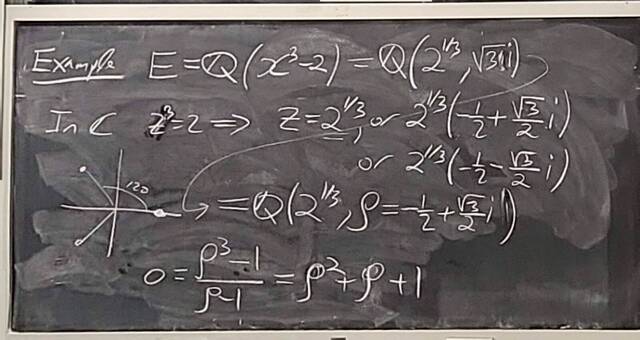 Example E = Q(x³-2) = Q(2^{1/3}, √3 i)
In C z³=2 ⟹ z=2^{1/3}, or 2^{1/3}(-1/2+√3/2 i)
or 2^{1/3}(-1/2-√3/2 i)
120
= Q(2^{1/3}, ρ=-1/2+√3/2 i)
0 = ρ³-1/ρ-1 = ρ²+ρ+1